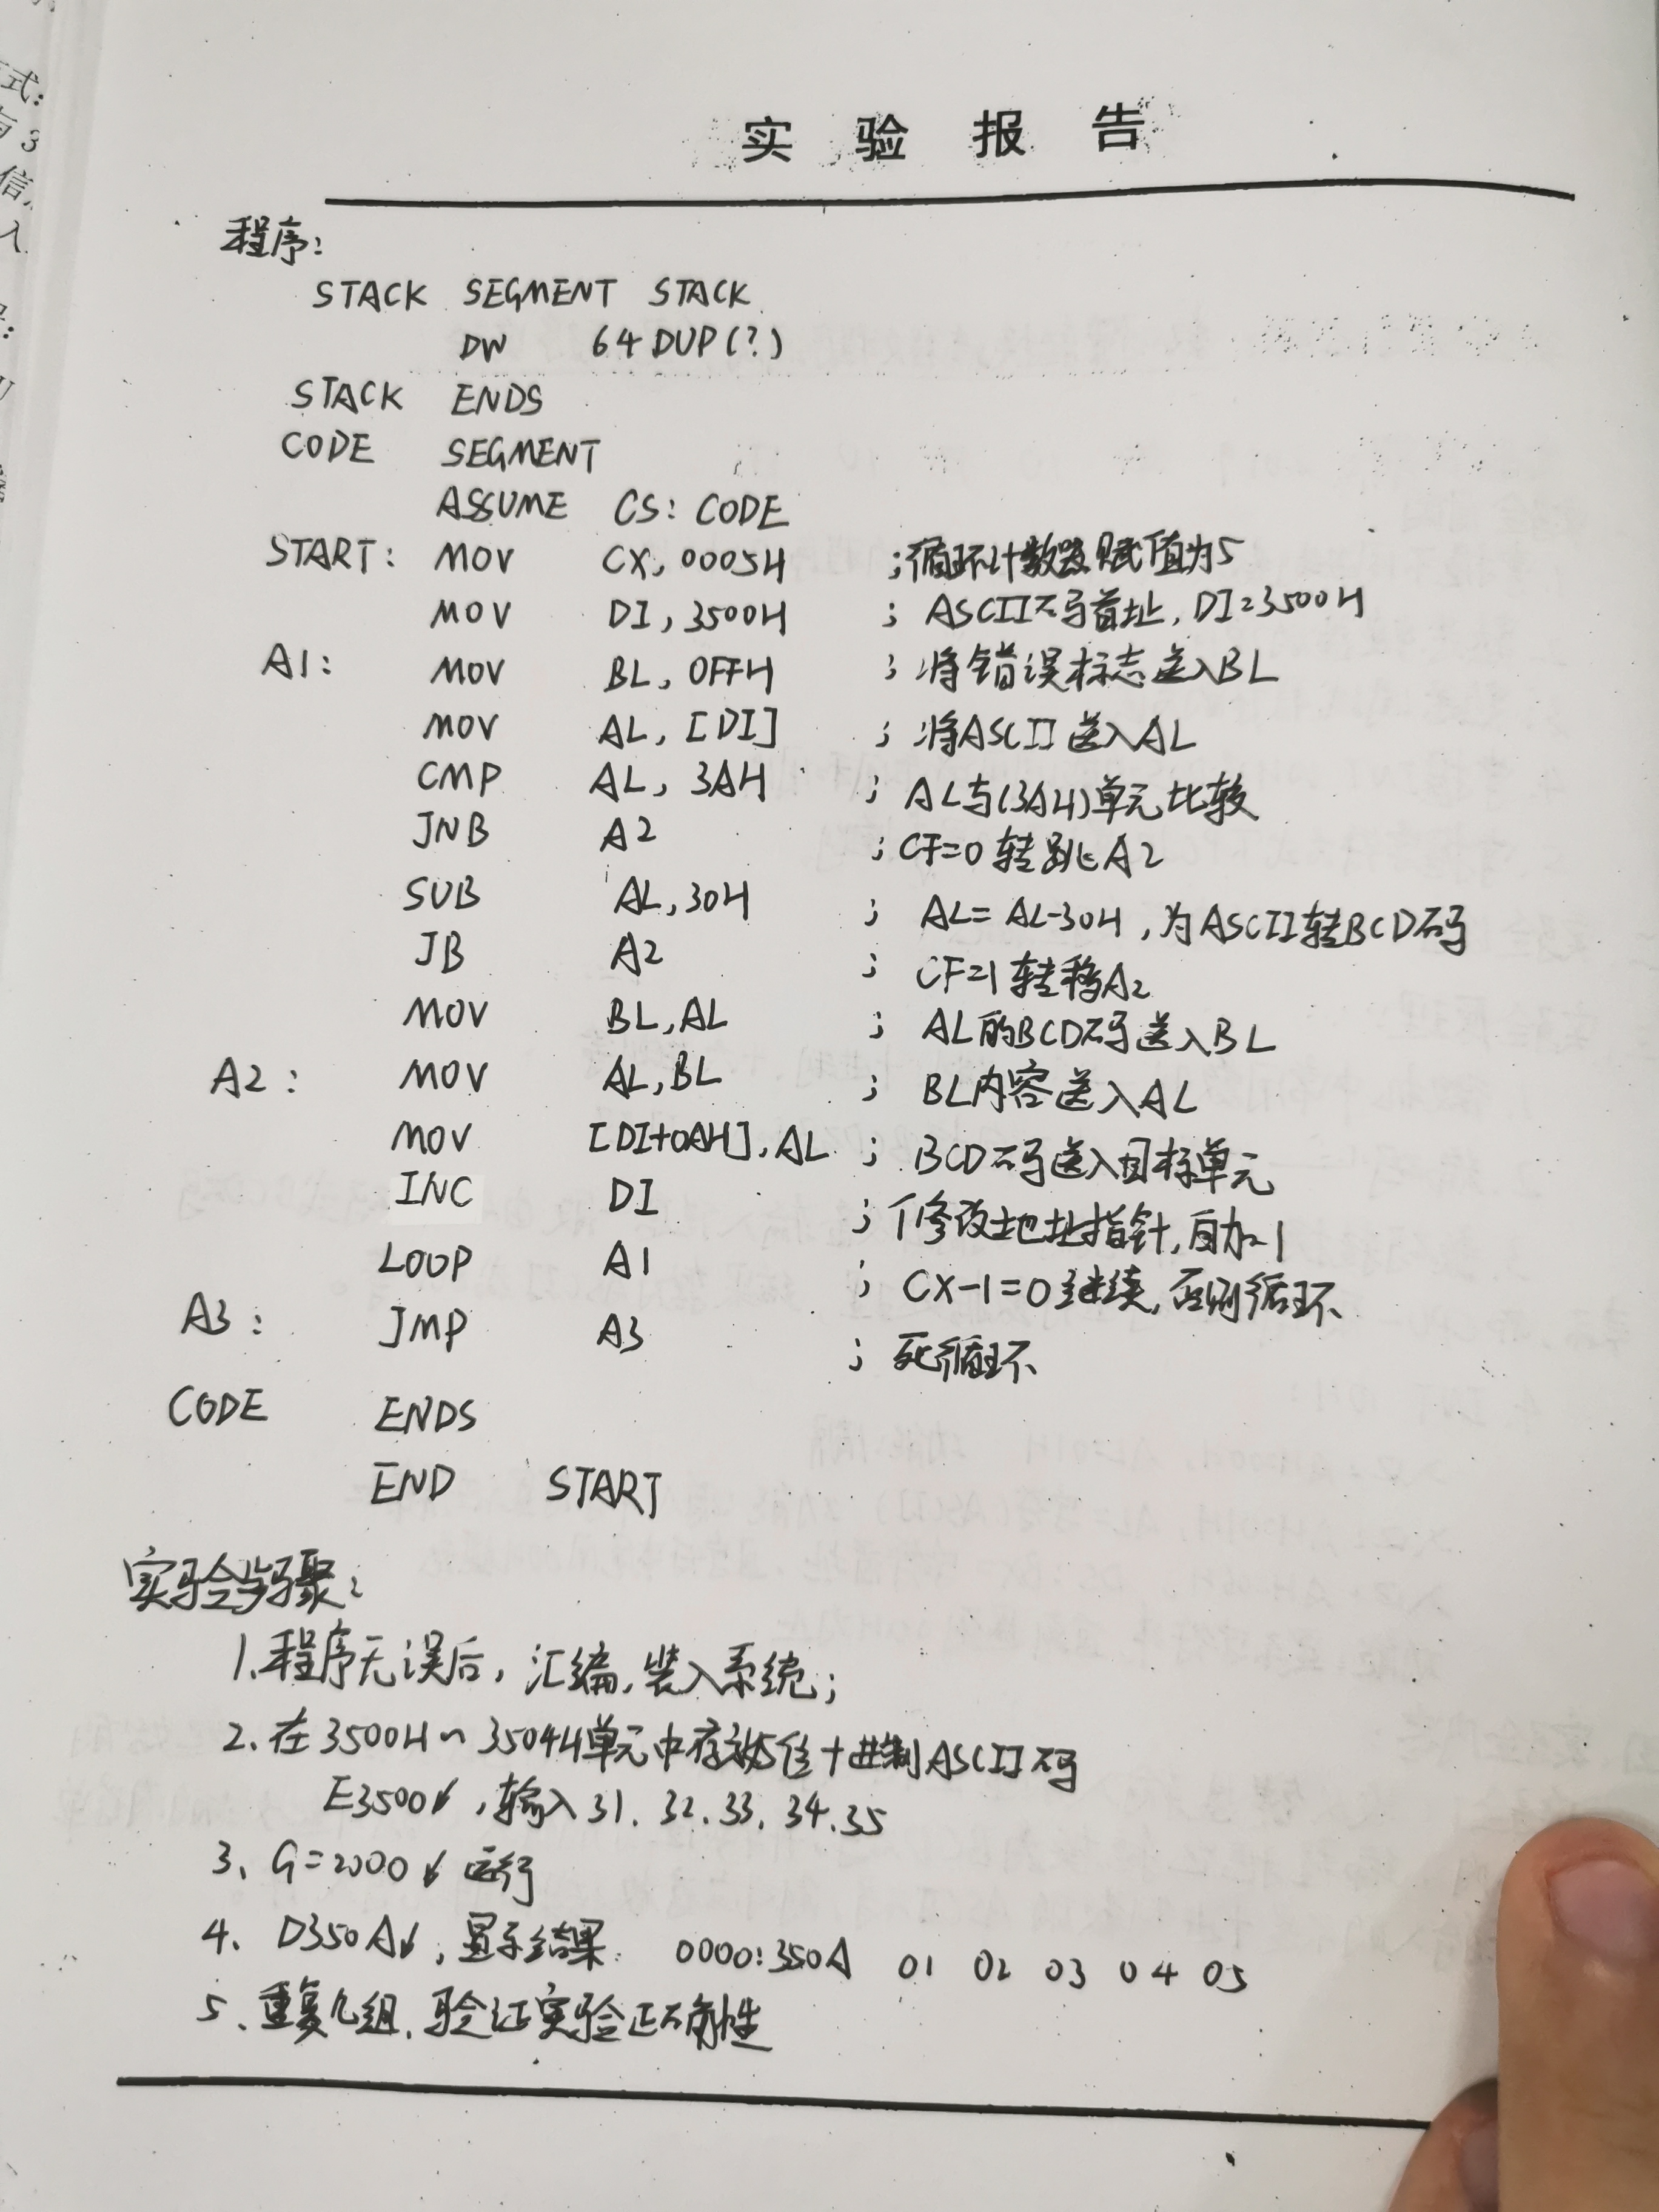 实验报告
程序:
STACK SEGMENT STACK
DW 64 DUP(?)
STACK ENDS
CODE SEGMENT
ASSUME CS: CODE
START: MOV CX, 0005H ;循环计数器赋值为5
MOV DI, 3500H ; ASCII码首址, DI=3500H
A1: MOV BL, 0FFH ; 将错误标志送入BL
MOV AL, [DI] ; 将ASCII送入AL
CMP AL, 3AH ; AL与(3AH)单元比较
JNB A2 ; CF=0转跳A2
SUB AL, 30H ; AL=AL-30H, 为ASCII转BCD码
JB A2 ; CF=1转移A2
MOV BL, AL ; AL的BCD码送入BL
A2: MOV AL, BL ; BL内容送入AL
MOV [DI+0AH], AL ; BCD码送入目标单元
INC DI ; 修改地址指针, 自加1
LOOP A1 ; CX-1=0继续, 否则循环
A3: JMP A3 ; 死循环
CODE ENDS
END START
实验步骤:
1.程序无误后, 汇编, 装入系统;
2.在3500H~3504H单元中存放5位十进制ASCII码
E3500↙, 输入31. 32. 33. 34. 35
3、G=2000↙ 运行
4、D350A↙, 显示结果: 0000:350A 01 02 03 04 05
5、重复几组, 验证实验正确性
式:
3
信
入